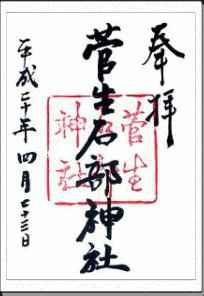 奉拝
菅生石部神社
菅生
石部
神社
平成二十年四月二十三日